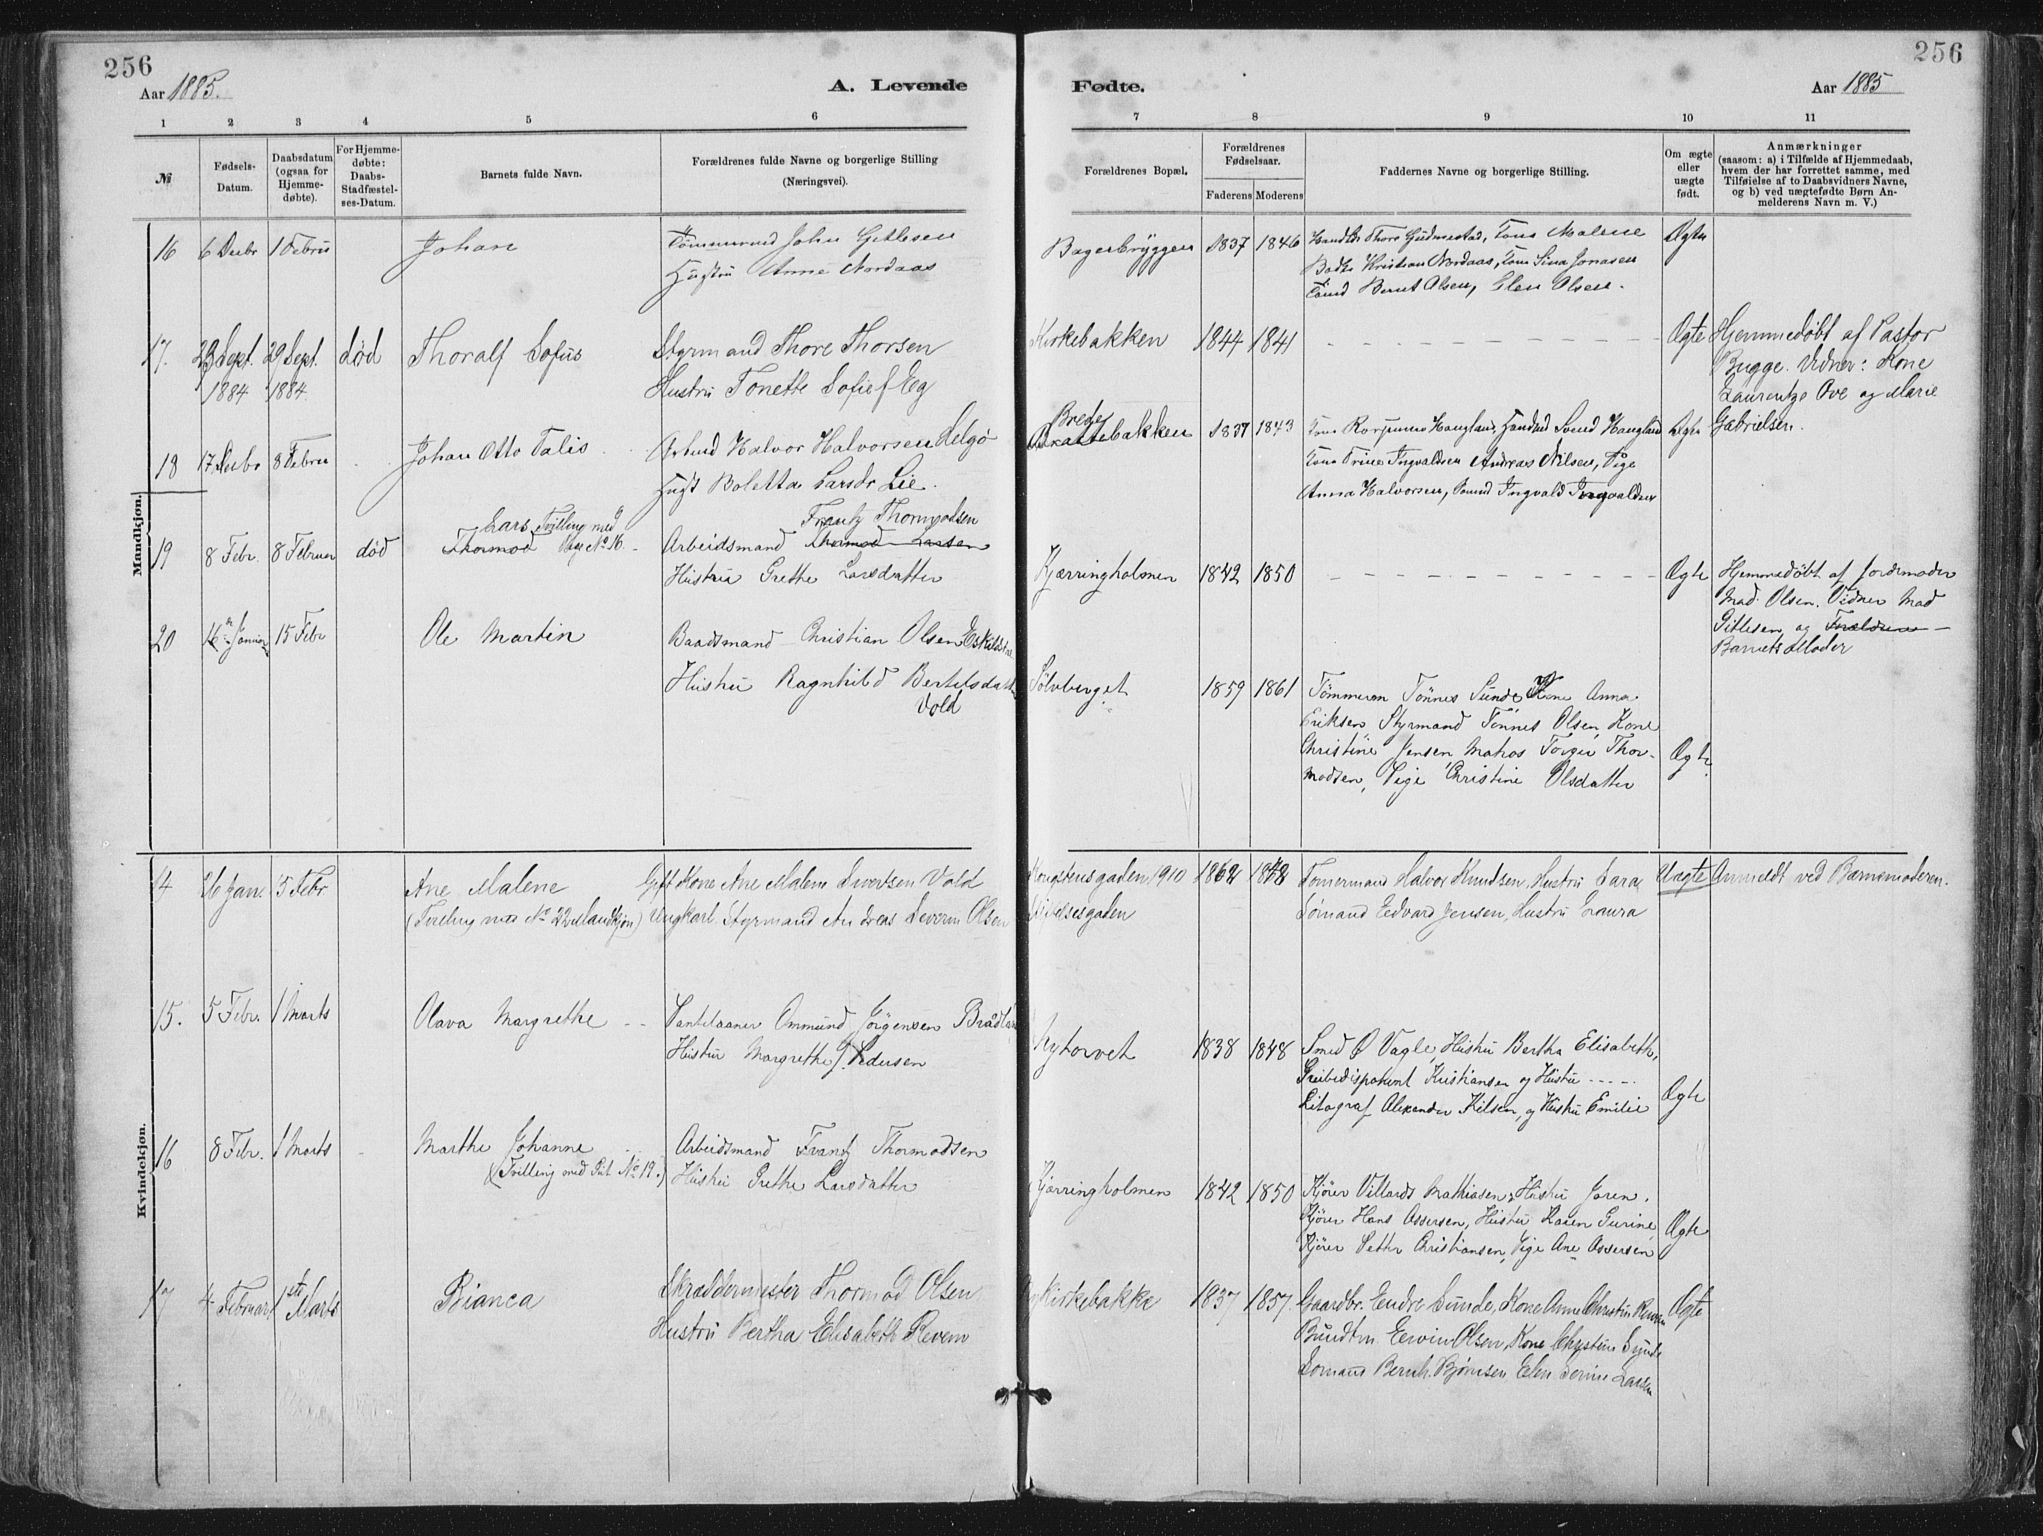 256
Aar 1885.
A. Levende
1 2 3 4 5 6
№
Fødsels-
Datum.
Daabsdatum
(ogsaa for
Hjemme-
døbte).
For Hjemme-
døbte:
Daabs-
Stadfæstel-
ses-Datum.
Barnets fulde Navn.
Forældrenes fulde Navne og borgerlige Stilling
(Næringsvei).
Mandkjøn.
16 6 Decbr 1 Febru Johan
John Gitlesen
Hustru Anne Nordaas
17. 29 Sept. 29 Sept. død Thoralf Sofus
1884 1884
Styrmand Thore Thorsen
Hustru Tonette Sofie f Eeg
18 17 Decbr 8 Februr Johan Otto Talis
Arbmd Halvor Halvorsen Selgø
Hust Boletta Larsdr Lie.
19 8 Febr. 8 Februar død
Lars Tvilling med
Thormod Pige No 16.
Frantz Thormodsen
Arbeidsmand Thormod Larsen
Hustru Grethe Larsdatter
20 16 Januar 15 Febr Ole Martin
Baadsmand Christian Olsen Eskildstrø
Hustru Ragnhild Bertelsdatt
Vold
Kvindekjøn.
14 26 Jan. 5 Febr Ane Malene
(Tvilling med No 22 Mandkjøn)
Gift Kone Ane Malene Sivertsen Vold
Ungkarl Styrmand Andreas Severin Olsen
15. 5 Febr. 1 Marts Olava Margrethe
Ommund Jörgensen
Hustru Margrethe f. Pedersen
16 8 Febr. 1 Marts Marthe Johanne
(Tvilling med Gut No 19.)
Arbeidsmand Frantz Thormodsen
Hustru Grethe Larsdatter
17 4 Februar 1ste Marts Bianca
Skræddermester Thormod Olsen
Hustru Bertha Elisabeth Revem
256
Fødte.
Aar 1885
7 8 9 10 11
Forældrenes Bopæl.
Forældrenes
Fødselsaar.
Faderens Moderens
Faddernes Navne og borgerlige Stilling.
Om ægte
eller
uægte
født.
Anmærkninger
(saasom: a) i Tilfælde af Hjemmedaab,
hvem der har forrettet samme, med
Tilføielse af to Daabsvidners Navne,
og b) ved uægtefødte Børn An-
melderens Navn m. V.)
Bagerbryggen 1837 1846 Thore Gudmestad, Kone Malene
Kristian Nordaas, Kone Sina Jonasen
Bernt Olsen, Elen Olsen.
Ægte
Kirkebakken 1844 1841 Ægte
Hjemmedøbt af Pastor
Bugge. Vidner: Kone
Laurentze Ove og Marie
Gabrielsen.
Brede
bakken 1837 1843
Haugland Svend Haugland
Kone Trine Ingvaldsen Andreas Nilsen, Pige
Anna Halvorsen, Ingvald Ingvaldsen
Ægte
Kjærringholmen 1842 1850 Ægte
Hjemmedøbt af Jordemoder
Mad. Olsen. Vidner Mad
Gitlesen og Forældrene
Barnets Moder
Sølvberget 1859 1861
Tömmerm Tönnes Sunde Kone Anna
Eriksen Styrmand Tönnes Olsen, Kone
Christine Jensen Matros Torger Thor-
modsen, Pige Christine Olsdatter
Ægte
Kongstensgaden 1910 1862 1848
Tømermand Halvor Knudsen, Hustru Sara
Sømand Edvard Jensen, Hustru Laura
Uægte Anmeldt ved Barnemoderen.
Nytorvet 1838 1848
Smed Ø Vagle, Hustru Bertha Elisabeth,
Kristiansen og Hustru - - - -
Litograf Alexander Nilsen, og Hustru Emilie
Ægte
Kjærringholmen 1842 1850
Kjører Villards Mathiasen, Hustru Joren.
Kjører Hans Assersen, Hustru Karen Gurine
Kjører Petter Christiansen, Pige Ane Assersen
Ægte
Kirkebakke 1837 1857.
Gaardbr. Endre Sunde, Kone Anne Christine
Bundtm Olsen, Kone Christine Sunde
Sømand Bernh. Bjørnsen Elen Serine Larsen
Ægte